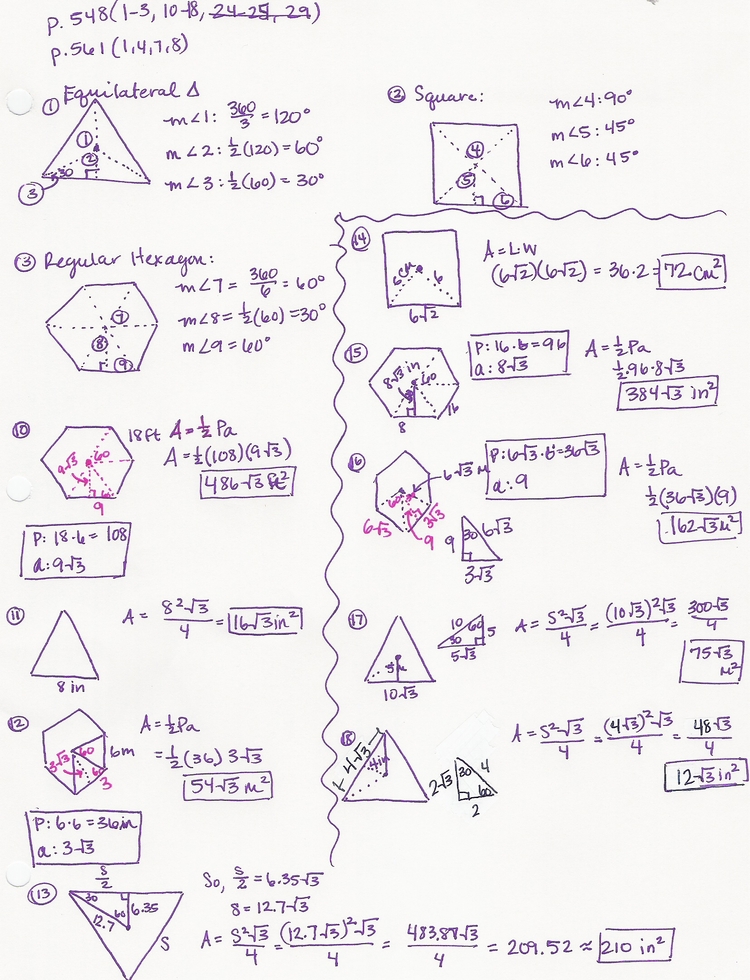 p. 548 (1-3, 10-18, 24-25, 29)
p. 561 (1,4,7,8)
① Equilateral Δ
①
②
30
③
m∠1: 360/3 = 120°
m∠2: ½(120) = 60°
m∠3: ½(60) = 30°
② Square:
④
⑤
⑥
m∠4: 90°
m∠5: 45°
m∠6: 45°
③ Regular Hexagon:
⑦
⑧
⑨
m∠7 = 360/6 = 60°
m∠8 = ½(60) = 30°
m∠9 = 60°
⑩
18ft
9√3
60
9
A = ½Pa
A = ½(108)(9√3)
486√3 ft²
P: 18·6 = 108
a: 9√3
⑪
8 in
A = 8²√3/4 = 16√3 in²
⑫
6m
3√3
60
3
A = ½Pa
= ½(36) 3√3
54√3 m²
P: 6·6 = 36in
a: 3√3
⑬
s/2
30
60
6.35
12.7
S
So, s/2 = 6.35√3
s = 12.7√3
A = S²√3/4 = (12.7√3)²√3/4 = 483.87√3/4 = 209.52 ≈ 210 in²
⑭
6cm
6
6√2
A = L·W
(6√2)(6√2) = 36·2 = 72 cm²
⑮
8√3 in
60
16
8
P: 16·6 = 96
a: 8√3
A = ½Pa
½·96·8√3
384√3 in²
⑯
6√3 M
60
6√3
3√3
9
P: 6√3·6 = 36√3
a: 9
9
30
6√3
3√3
A = ½Pa
½(36√3)(9)
162√3 M²
⑰
5
10√3
10
60
5
30
5√3
A = S²√3/4 = (10√3)²√3/4 = 300√3/4
75√3 M²
⑱
4√3
4in
2√3
30
4
60
2
A = S²√3/4 = (4√3)²√3/4 = 48√3/4
12√3 in²